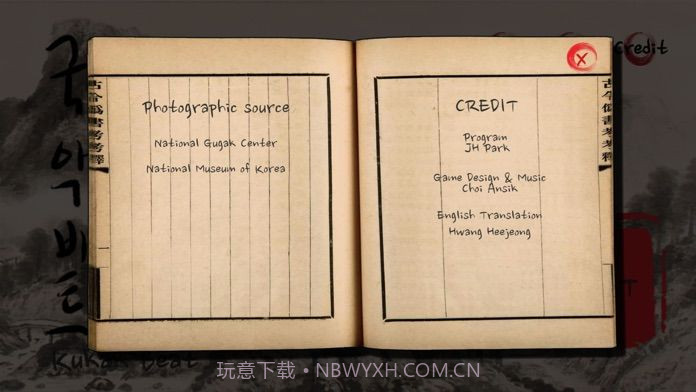 국악비트
Kukak Beat
Credit
X
古今偽書考考釋
Photographic source
National Gugak Center
National Museum of Korea
CREDIT
Program
JH Park
Game Design & Music
Choi Ansik
English Translation
Hwang Heejeong
古今偽書考考釋
T
玩意下载·NBWYXH.COM.CN